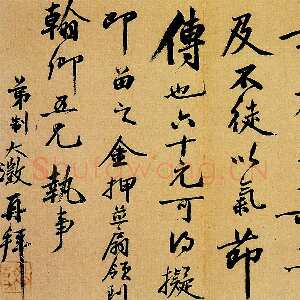 及不徒以氣節
傳也六十元可得擬
即留之金押葊扇領到
翰卿五兄執事
弟制大澂再拜